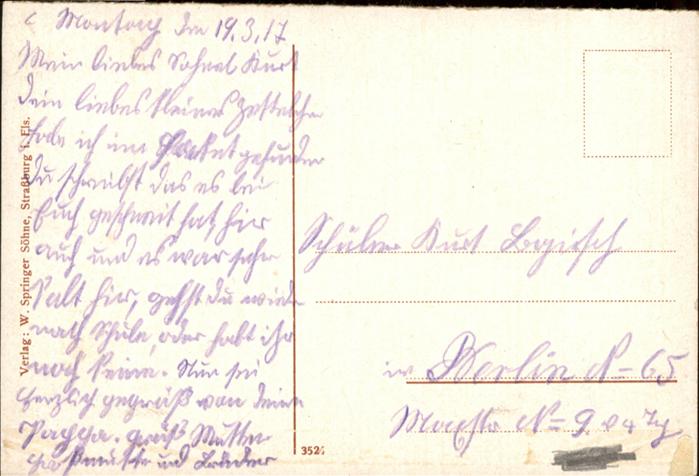 Montag den 19.3.17
Mein liebes Sohnel Kurt
dein liebes kleines Zettelchen
habe ich im Packet gefunden
du schreibst das es bei
Euch geschneit hat, hier
auch und es war sehr
kalt hier, gehst du wieder
nach Schule, oder habt ihr
noch keine. Nun sei
herzlich gegrüß von deinen
Pappa. grüß Mutter
und Brüder
Schüler Kurt
in Berlin N-65
N= 9
Verlag: W. Springer Söhne, Straßburg i. Els.